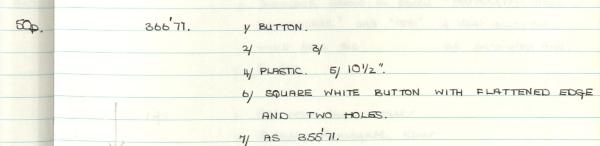 50p. 366'71. 1/ BUTTON.
2/ 3/
4/ PLASTIC. 5/ 10½".
6/ SQUARE WHITE BUTTON WITH FLATTENED EDGE
AND TWO HOLES.
7/ AS 355'71.